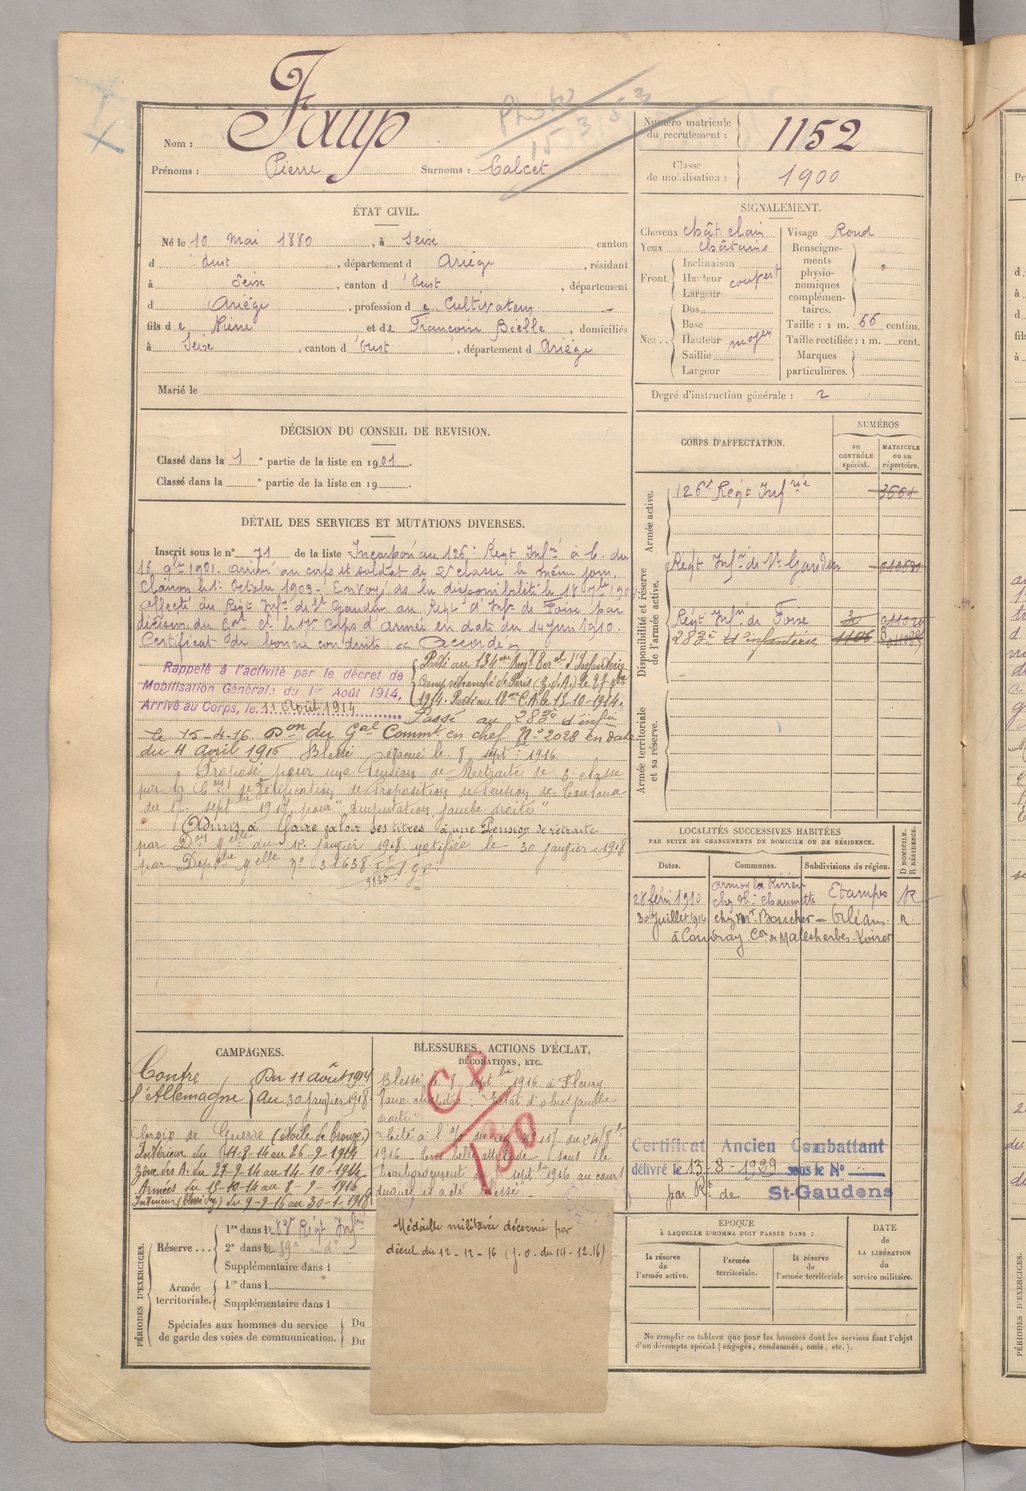 Faup
Nom :
Prénoms : Pierre Surnoms : Calcet
Photo
Numéro matricule du recrutement : 1152
Classe de mobilisation : 1900
ÉTAT CIVIL.
Né le 10 mai 1880, à Seix canton
d dust, département d Ariège, résidant
à Seix, canton d dust, département
d Ariège, profession de Cultivateur
fils de Pierre et de Françoise Bielle, domiciliés
à Seix, canton d dust, département d Ariège
Marié le
SIGNALEMENT.
Cheveux chât clair Visage Rond
Yeux châtains Renseignements physionomiques complémentaires.
Front. Inclinaison
Hauteur couvert
Largeur
Nez .. Dos
Base
Hauteur moyen
Saillie
Largeur
Taille : 1 m. 66 centim.
Taille rectifiée : 1 m. cent.
Marques particulières.
Degré d'instruction générale : 2
DÉCISION DU CONSEIL DE REVISION.
Classé dans la 1 e partie de la liste en 1901.
Classé dans la e partie de la liste en 19
DÉTAIL DES SERVICES ET MUTATIONS DIVERSES.
Inscrit sous le n° 71 de la liste Incorporé au 126e Régt Infie à C. du
16 9bre 1901. arrivé au corps et soldat de 2e classe le même jour.
Clairon le 1er Octobre 1903. Envoyé
affecté au Régt Infie de St Gaudens au Régt d'Infie de Foix par
décision du Gal Ct le 17e Corps d'Armée en date du 14 Juin 1910.
Certificat de bonne conduite accordé
Rappelé à l'activité par le décret de
Mobilisation Générale du 1er Août 1914,
Arrivé au Corps, le 11 Août 1914
Passé au 134me Régt d'Infanterie
Camp retranché de Paris (Z.d.A.) le 27 9bre
1914. Passé au le 15-10-1914.
Passé au 283e d'infie
le 15-4-16 Don du Gal Commt en chef N° 2028 en date
du 4 avril 1916 Blessé évacué le 8 sept 1916
Proposé pour une Pension de Retraite de 5e classe
par la Con de Vérification de proposition de pension de Toulouse
du 17 septbre 1917 pour "Amputation jambe droite"
Admis à faire valoir ses titres à une Pension de retraite
par Don Melle du 12 janvier 1918 notifiée le 30 janvier 1918
par Dépêche Melle n° 31638
9830
CORPS D'AFFECTATION.
NUMÉROS
au CONTRÔLE spécial.
MATRICULE ou au répertoire.
Armée active.
126e Régt Infrie 3661
Disponibilité et réserve de l'armée active.
Régt Infie de St Gaudens
Régt Infie de Foix
283e d'infanterie
Armée territoriale et sa réserve.
LOCALITÉS SUCCESSIVES HABITÉES
PAR SUITE DE CHANGEMENTS DE DOMICILE OU DE RÉSIDENCE.
Dates. Communes. Subdivisions de région. D DOMICILE. R RÉSIDENCE.
28 févri 1910 ormoy la Rivière chez Mr Chaumette Etampes R
30 juillet 1914 chez Mr Boucher - Orléans R
à Coudray Con de Malesherbes. Loiret
CAMPAGNES.
Contre l'Allemagne
Du 11 août 1914
au 30 janvier 1918
Croix de Guerre (étoile de bronze)
Intérieur du 11-8-14 au 26-9-1914
Zône des A. du 27-9-14 au 14-10-1914
Armées du 15-10-14 au 8-9-1916
Intérieur (blessé) du 9-9-16 au 30-1-1918
BLESSURES, ACTIONS D'ÉCLAT,
DÉCORATIONS, ETC.
Blessé le 8 septbre 1916 à Fleury
"Eclat d'obus jambe
droite"
Cité à l'O/
1916 sous le
bombardement
CP
130
Certificat Ancien Combattant
délivré le 13-8-1929 sous le N°
par Rt de St-Gaudens
Médaille militaire décernée par
décret du 12-12-16 (J.O. du 14-12-16)
PÉRIODES D'EXERCICES.
Réserve ... 1re dans le 83e Régt Infie
2e dans le 59e do
Supplémentaire dans l
Armée territoriale. 1re dans l
Supplémentaire dans l
Spéciales aux hommes du service de garde des voies de communication. Du
Du
ÉPOQUE
À LAQUELLE L'HOMME DOIT PASSER DANS :
la réserve de l'armée active.
l'armée territoriale.
la réserve de l'armée territoriale
DATE DE LA LIBÉRATION du service militaire.
Ne remplir ce tableau que pour les hommes dont les services font l'objet
d'un décompte spécial (engagés, condamnés, omis, etc.).
PÉRIODES D'EXERCICES